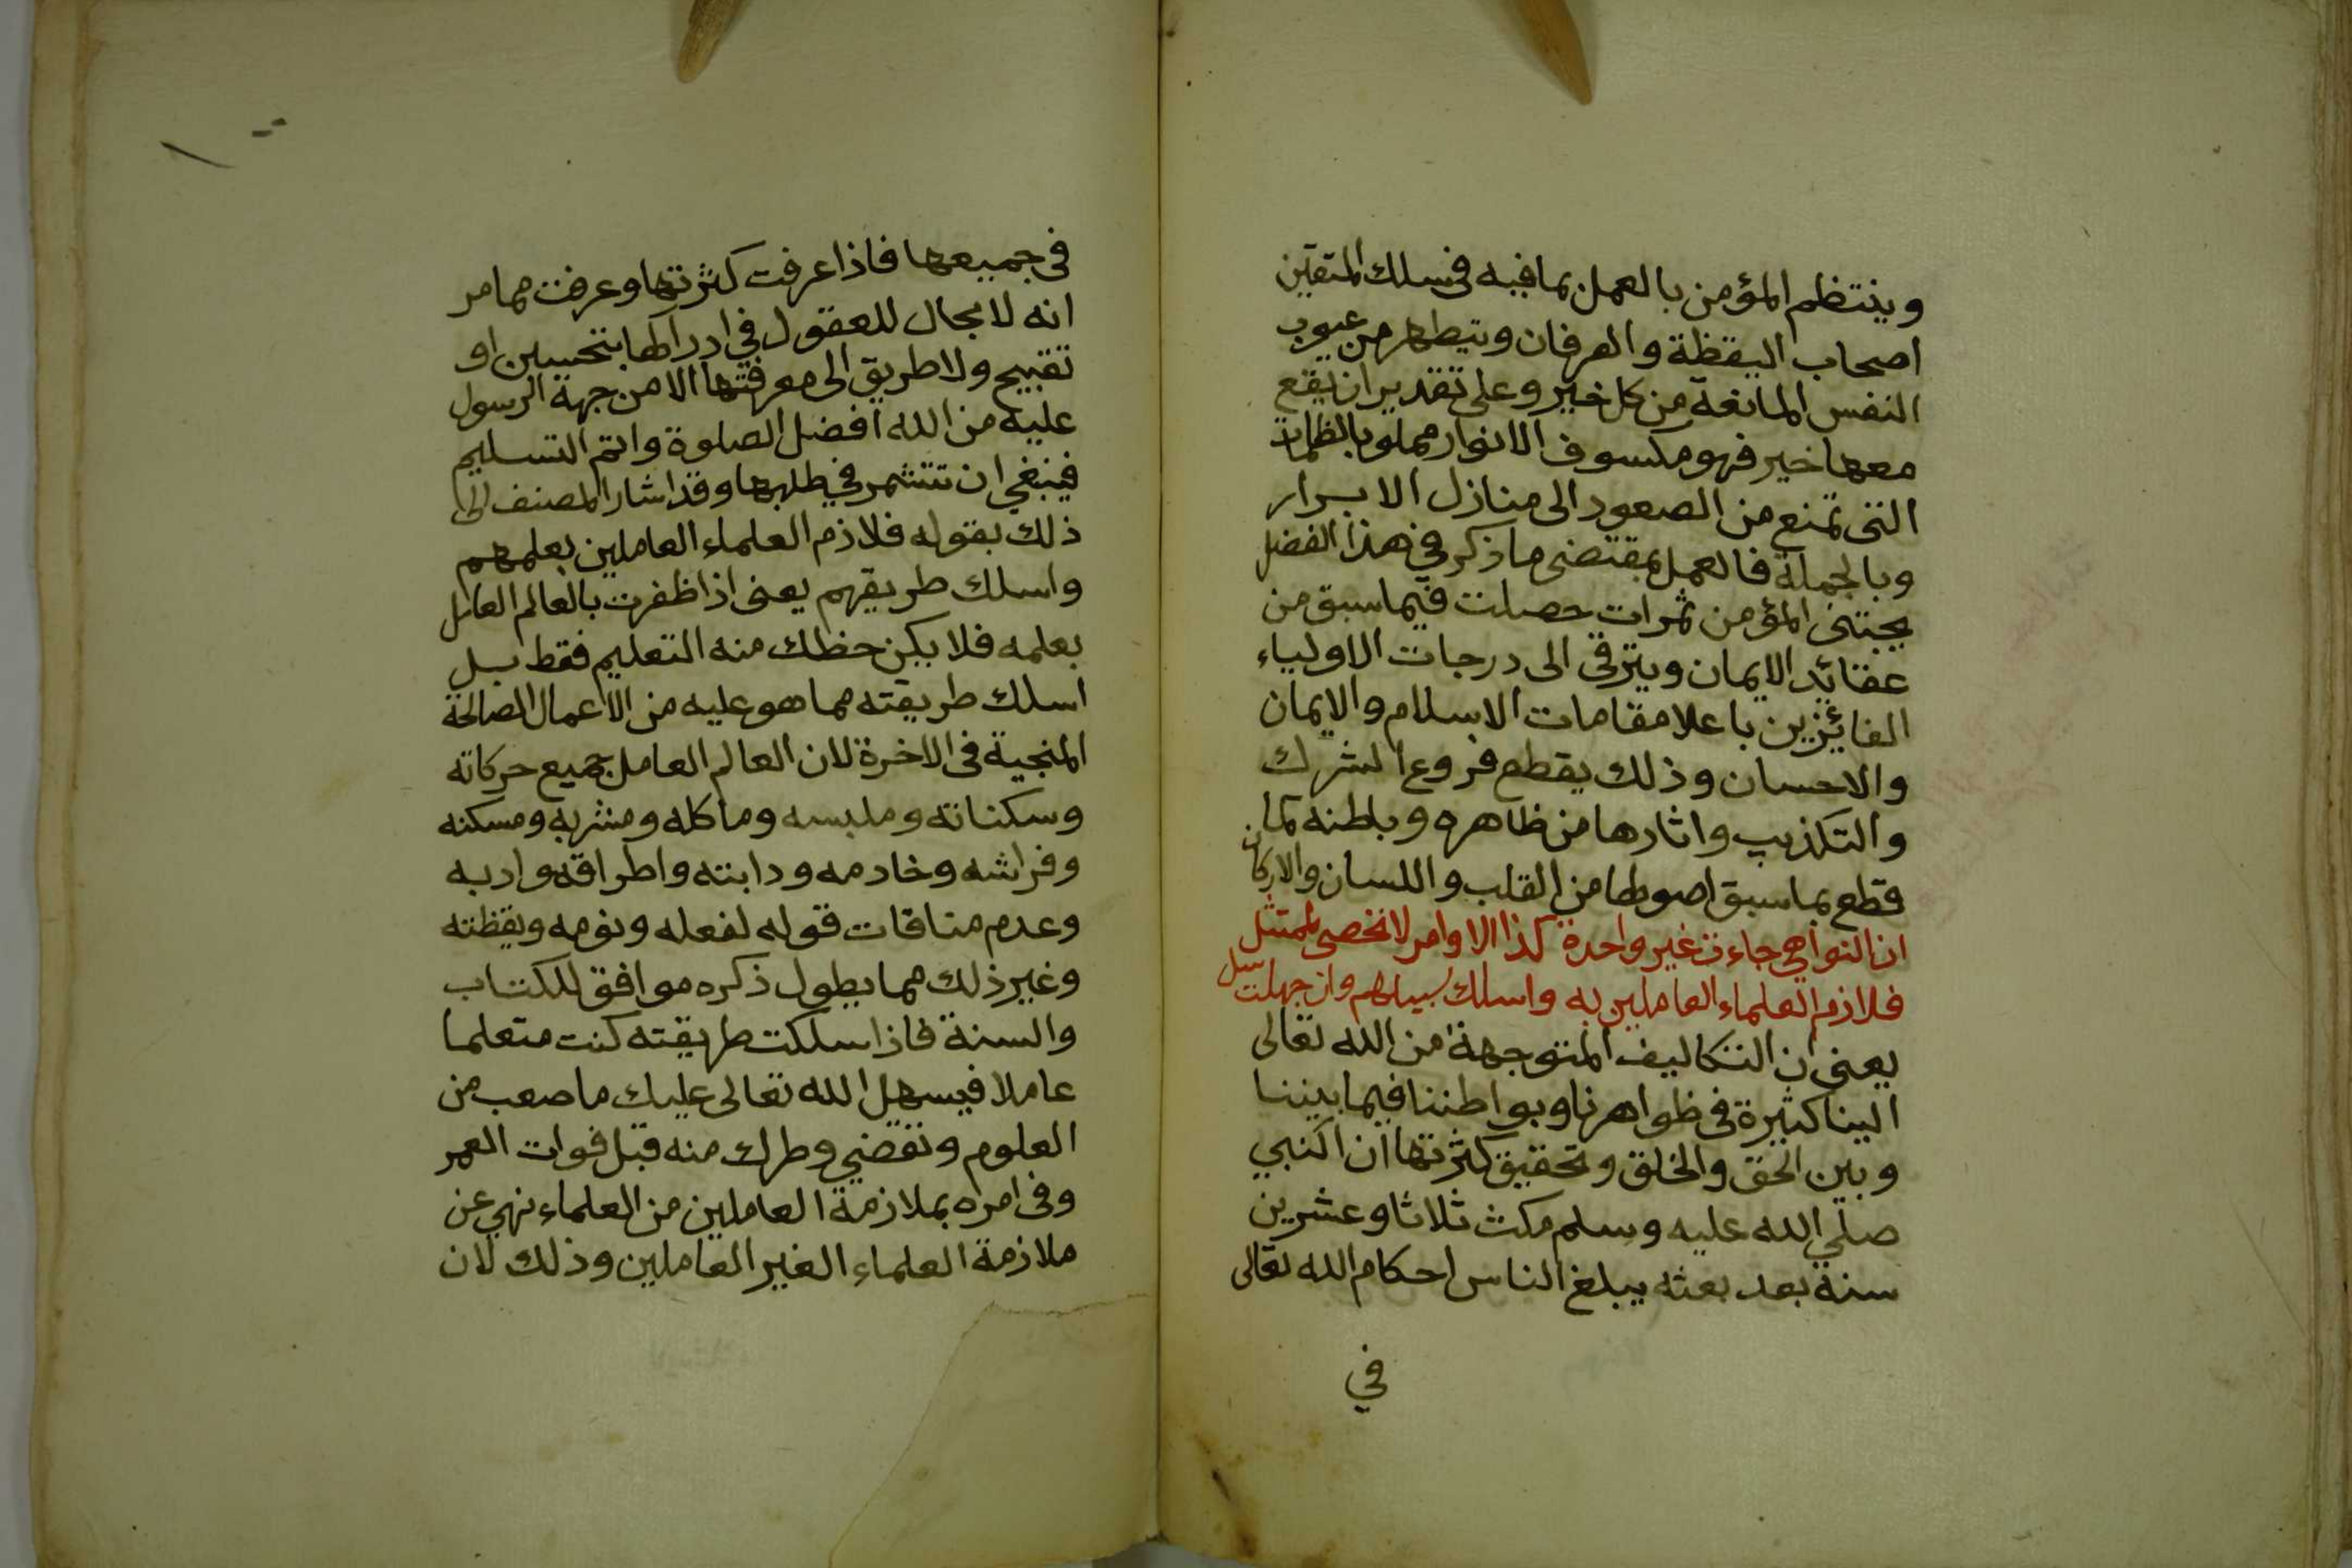 وينتظم المؤمن بالعمل بما فيه فى سلك المتقين
اصحاب اليقظة والعرفان ويتطهر من عيوب
النفس المانعة من كل خير وعلى تقدير ان يقع
معها خير فهو مكسوف الانوار مملو بالظلمات
التى تمنع من الصعود الى منازل الابرار
وبالجملة فالعمل بمقتضى ما ذكر في هذا الفضل
يجتنى المؤمن ثمرات حصلت فيما سبق من
عقائد الايمان ويترقى الى درجات الاولياء
الفائزين باعلا مقامات الاسلام والايمان
والاحسان وذلك يقطع فروع الشرك
والتكذيب واثارها من ظاهره وباطنه كما
قطع بما سبق اصولها من القلب واللسان والاركان
ان النواهي جاءت غير واحدة كذا الاوامر لا تخصى لممتثل
فلازم العلماء العاملين به واسلك سبيلهم وان جهلت سل
يعنى ان التكاليف المتوجهة من الله تعالى
الينا كثيرة فى ظواهرنا وبواطننا فيما بيننا
وبين الحق والخلق وتحقيق كثرتها ان النبي
صلي الله عليه وسلم مكث ثلاثا وعشرين
سنة بعد بعثه يبلغ الناس احكام الله تعالى
في
فى جميعها فاذا عرفت كثرتها وعرفت مما مر
انه لا مجال للعقول في ادراكها بتحسين او
تقبيح ولا طريق الى معرفتها الا من جهة الرسول
عليه من الله افضل الصلوة واتم التسليم
فينبغي ان تتشمر في طلبها وقد اشار المصنف الى
ذلك بقوله فلازم العلماء العاملين بعلمهم
واسلك طريقهم يعنى اذا ظفرت بالعالم العامل
بعلمه فلا يكن حظك منه التعليم فقط بل
اسلك طريقته مما هو عليه من الاعمال الصالحة
المنجية فى الاخرة لان العالم العامل جميع حركاته
وسكناته وملبسه وماكله ومشربه ومسكنه
وفراشه وخادمه ودابته واطراقه وادبه
وعدم منافات قوله لفعله ونومه ويقظته
وغير ذلك مما يطول ذكره موافق للكتاب
والسنة فاذا سلكت طريقته كنت متعلما
عاملا فيسهل الله تعالى عليك ما صعب من
العلوم وتقضي وطرك منه قبل فوات العمر
وفى امره بملازمة العاملين من العلماء نهي عن
ملازمة العلماء الغير العاملين وذلك لان